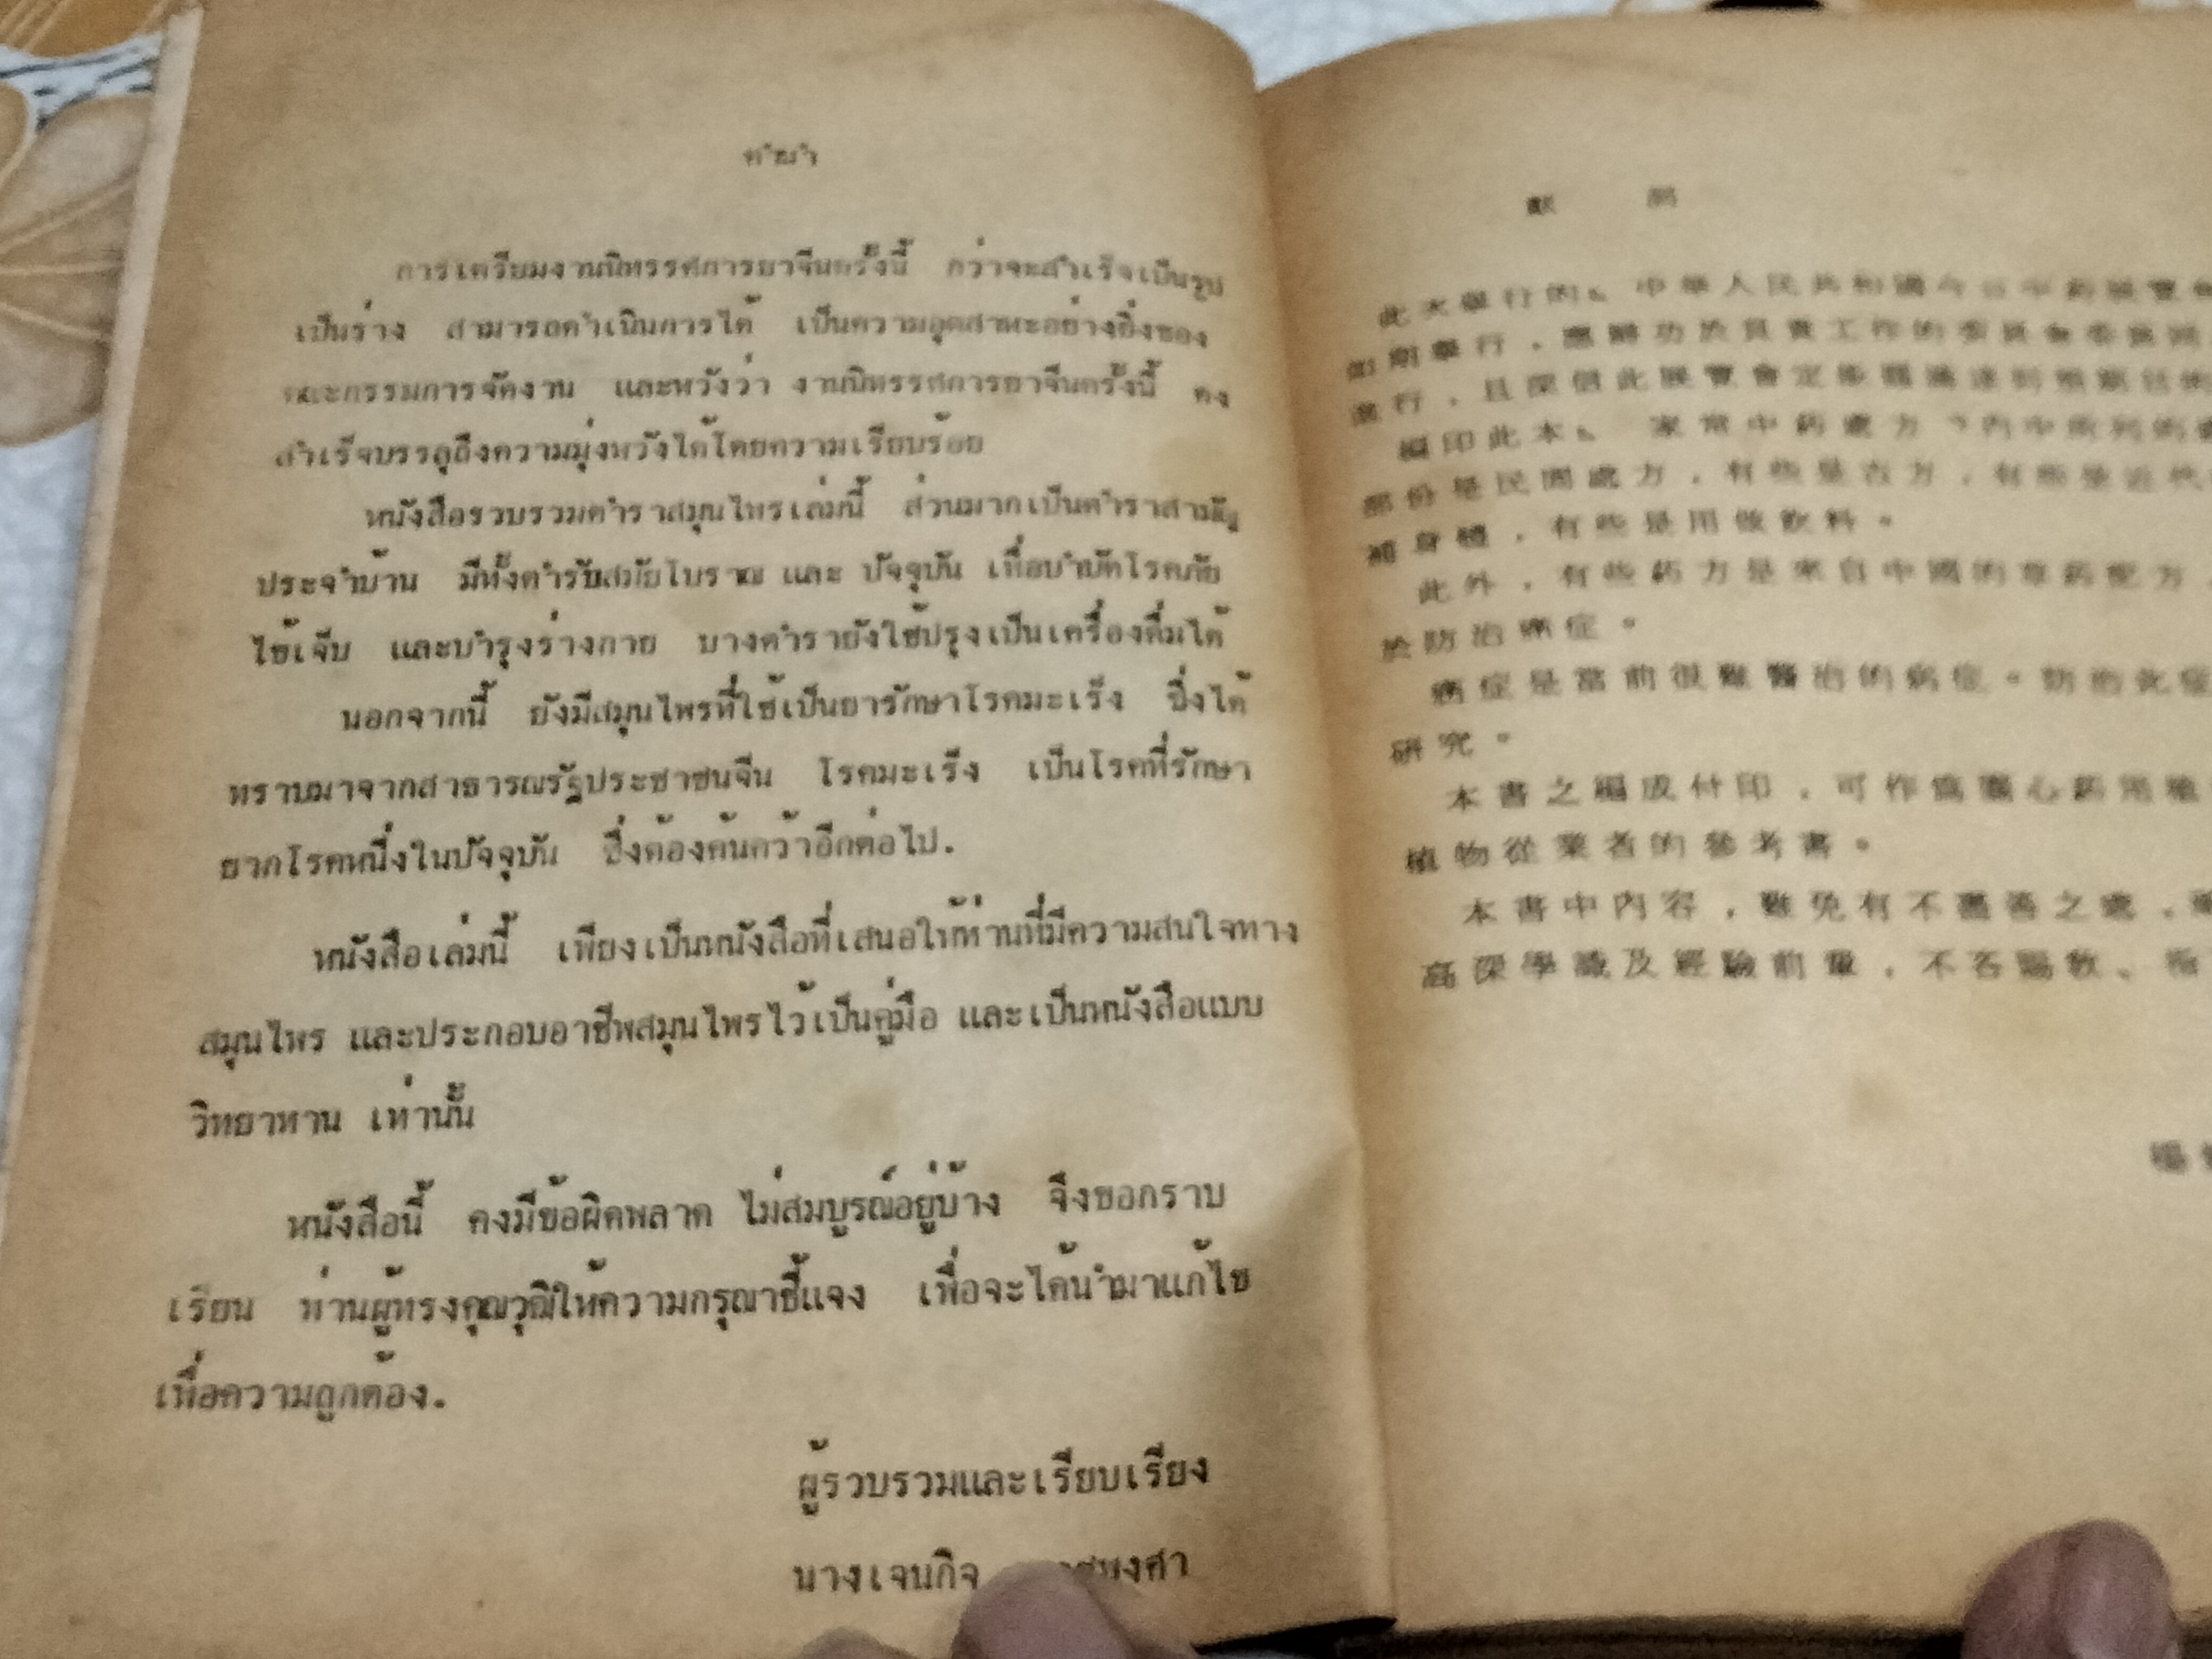 คำนำ
การเตรียมงานนิทรรศการยาจีนครั้งนี้ กว่าจะสำเร็จเป็นรูป
เป็นร่าง สามารถดำเนินการได้ เป็นความอุตสาหะอย่างยิ่งของ
คณะกรรมการจัดงาน และหวังว่า งานนิทรรศการยาจีนครั้งนี้ คง
สำเร็จบรรลุถึงความมุ่งหวังได้โดยความเรียบร้อย
หนังสือรวบรวมตำราสมุนไพรเล่มนี้ ส่วนมากเป็นตำราสามัญ
ประจำบ้าน มีทั้งตำรับสมัยโบราณ และ ปัจจุบัน เพื่อบำบัดโรคภัย
ไข้เจ็บ และบำรุงร่างกาย บางตำรายังใช้ปรุงเป็นเครื่องดื่มได้
นอกจากนี้ ยังมีสมุนไพรที่ใช้เป็นยารักษาโรคมะเร็ง ซึ่งได้
ทราบมาจากสาธารณรัฐประชาชนจีน โรคมะเร็ง เป็นโรคที่รักษา
ยากโรคหนึ่งในปัจจุบัน ซึ่งต้องค้นคว้าอีกต่อไป.
หนังสือเล่มนี้ เพียงเป็นหนังสือที่เสนอให้ท่านที่มีความสนใจทาง
สมุนไพร และประกอบอาชีพสมุนไพรไว้เป็นคู่มือ และเป็นหนังสือแบบ
วิทยาทาน เท่านั้น
หนังสือนี้ คงมีข้อผิดพลาด ไม่สมบูรณ์อยู่บ้าง จึงขอกราบ
เรียน ท่านผู้ทรงคุณวุฒิให้ความกรุณาชี้แจง เพื่อจะได้นำมาแก้ไข
เพื่อความถูกต้อง.
ผู้รวบรวมและเรียบเรียง
นางเจนกิจ
此次舉行的 中華人民共和國今日中药展覽會
舉行，應歸功於負責工作的委員會委員
進行，且深信此展覽會定能圓滿達到
編印此本 家常中药處方 內中所列的
部份是民間處方，有些是古方，有些是近代
補身體，有些是用做飲料。
此外，有些药方是來自中國的草药配方
於防治癌症。
癌症是當前很難醫治的病症。防治此症
研究。
本書之編成付印，可作爲關心药用植
植物從業者的參考書。
本書中內容，難免有不盡善之處，
高深學識及經驗前輩，不吝賜教、指